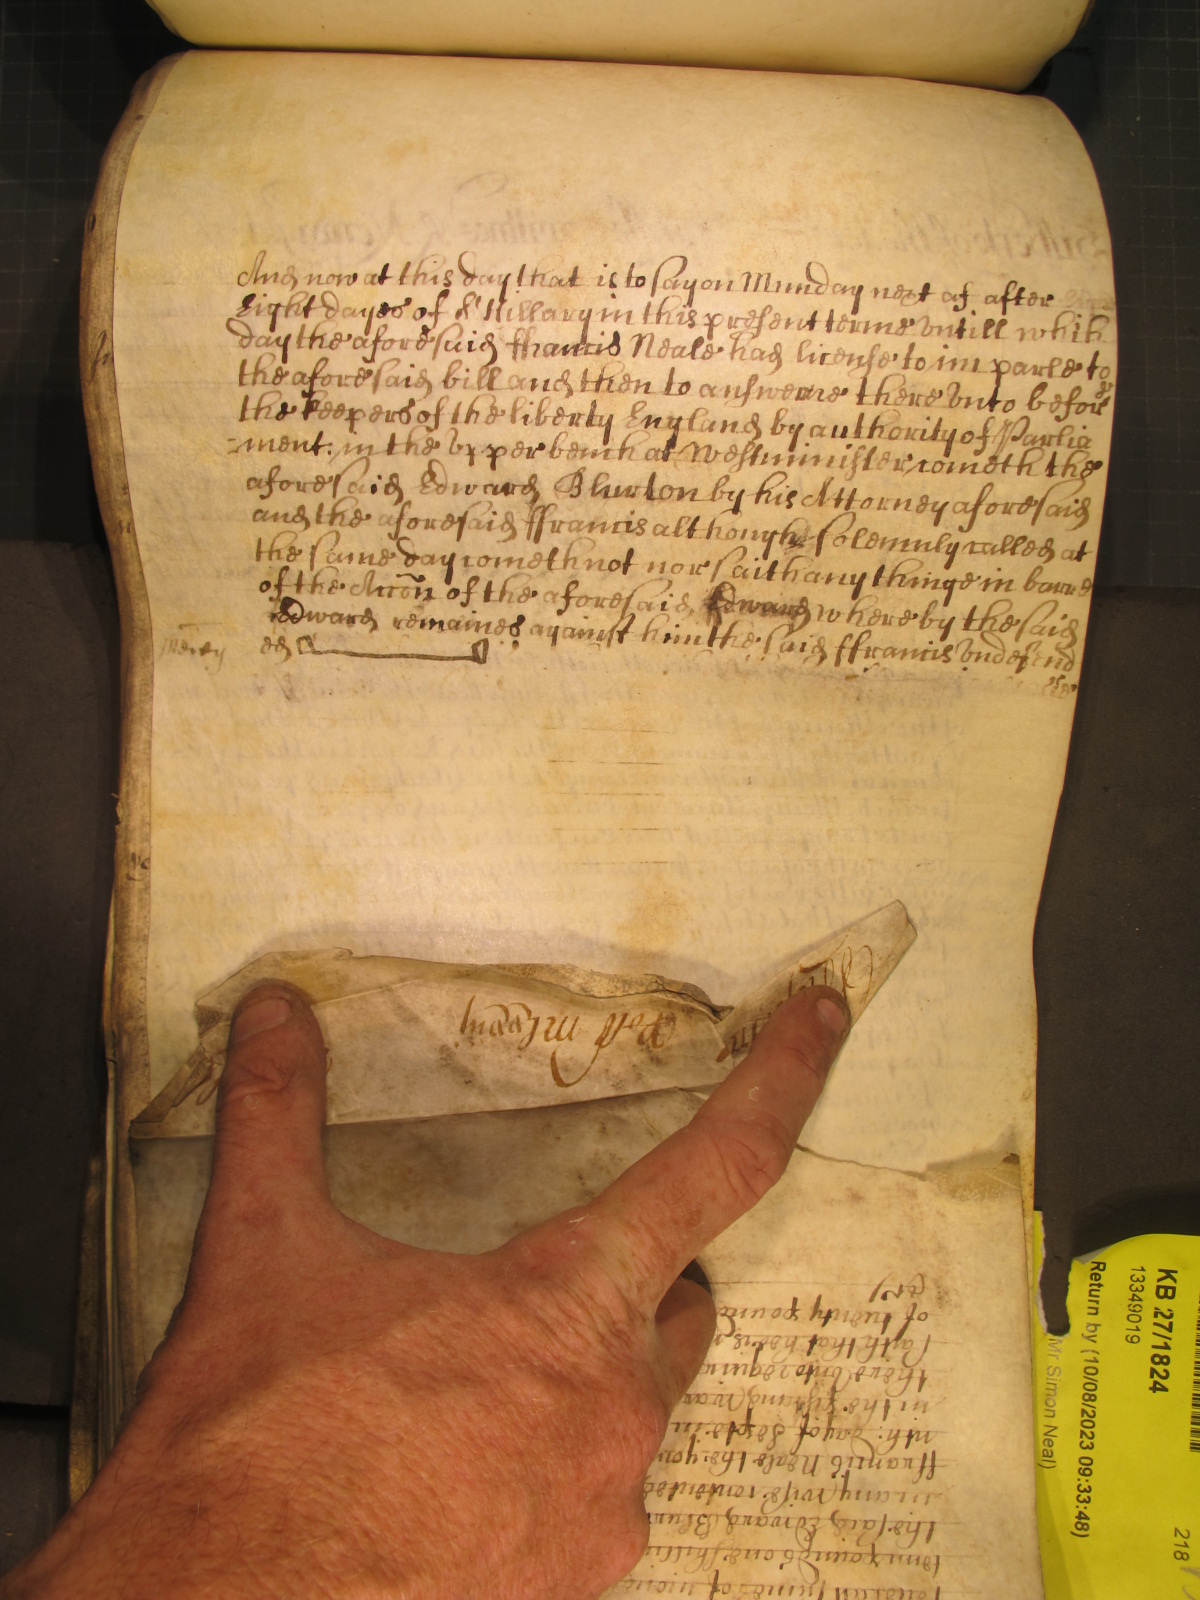 And now at this day that is to say on Munday next af after
Eight dayes of St Hillary in this present terme untill which
day the aforesaid ffrancis Neale had license to imparle to
the aforesaid bill and then to answere there unto before
the keepers of the liberty England by authority of Parlia
=ment. in the upper bench at Westminister, cometh the
aforesaid Edward Blurton by his Attorney aforesaid
and the aforesaid ffrancis although solemnly called at
the same day cometh not nor saith any thinge in barre
of the Accōn of the aforesaid Edward where by the said
Edward remaines against him the said ffrancis undefend
ed
Mercy
Roll
of twenty pound
saith that hee is
there unto requir
in the
nth: day of Septe
ffrancis Neale the
in any wise
the said Edward Blur
tenn pounds one shilli
KB 27/1824
13349019
Return by (10/08/2023 09:33:48)
Mr Simon Neal)
218